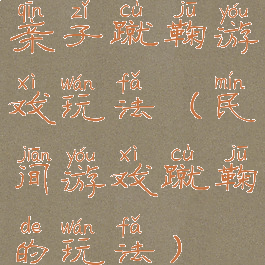 qīn zǐ cù jū yóu
亲子蹴鞠游
xì wán fǎ mín
戏玩法（民
jiān yóu xì cù jū
间游戏蹴鞠
de wán fǎ
的玩法）